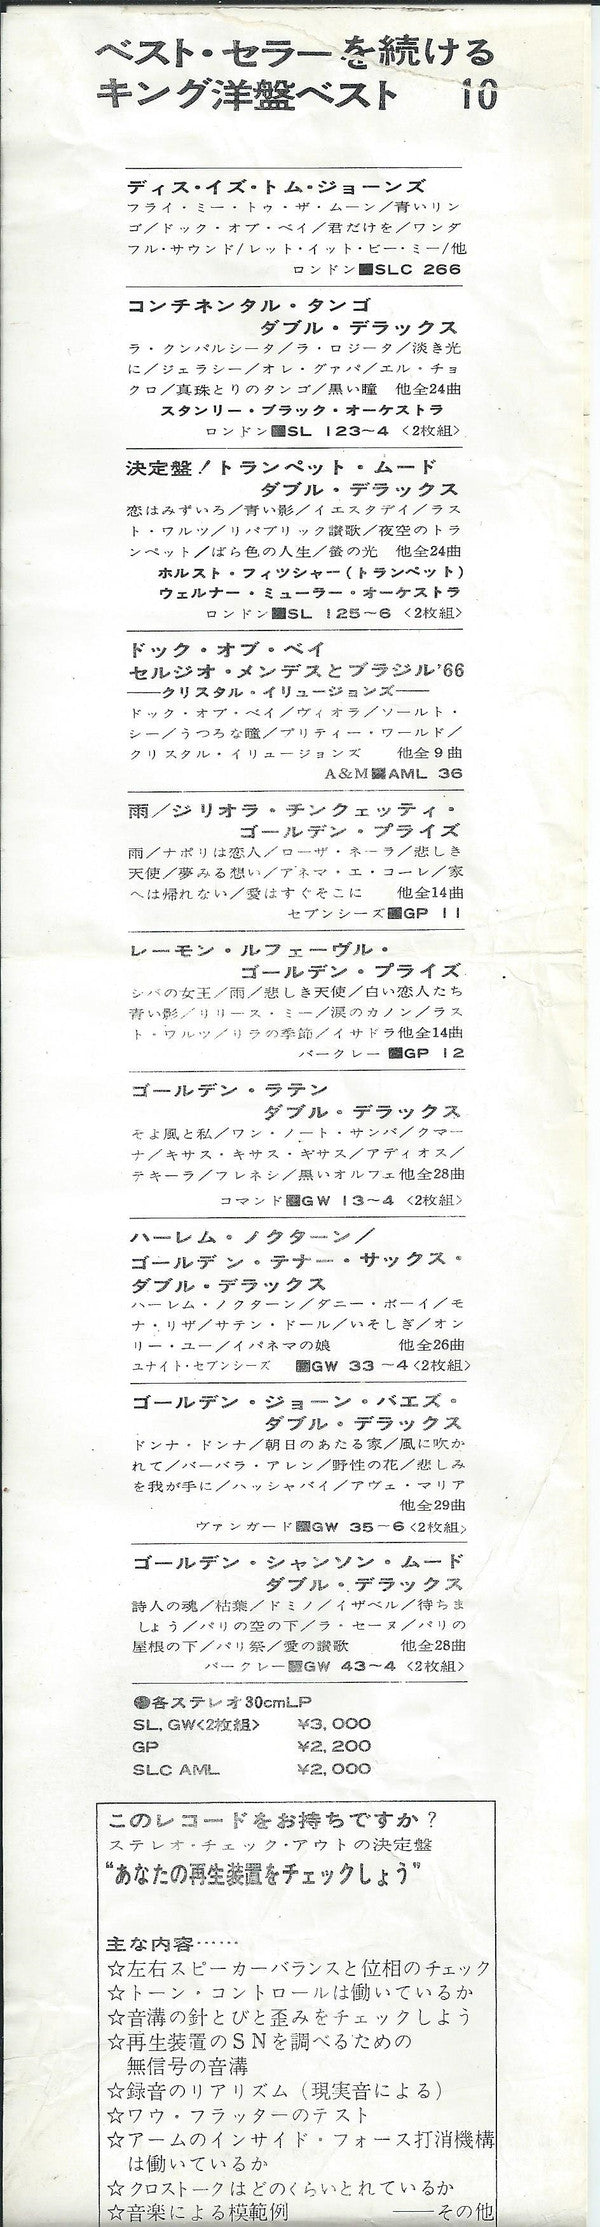 ベスト・セラーを続ける
キング洋盤ベスト 10
ディス・イズ・トム・ジョーンズ
フライ・ミー・トゥ・ザ・ムーン／青いリン
ゴ／ドック・オブ・ベイ／君だけを／ワンダ
フル・サウンド/レット・イット・ビー・ミー/他
ロンドン■SLC 266
コンチネンタル・タンゴ
ダブル・デラックス
ラ・クンパルシータ／ラ・ロジータ／淡き光
に／ジェラシー／オレ・グァパ／エル・チョ
クロ／真珠とりのタンゴ／黒い瞳 他全24曲
スタンリー・ブラック・オーケストラ
ロンドン■SL 123~4 <2枚組>
決定盤！トランペット・ムード
ダブル・デラックス
恋はみずいろ／青い影／イエスタデイ／ラス
ト・ワルツ／リパブリック讃歌／夜空のトラ
ンペット／ばら色の人生／螢の光 他全24曲
ホルスト・フィッシャー(トランペット)
ウェルナー・ミューラー・オーケストラ
ロンドン■SL 125~6 <2枚組>
ドック・オブ・ベイ
セルジオ・メンデスとブラジル'66
──クリスタル・イリュージョンズ──
ドック・オブ・ベイ／ヴィオラ／ソールト・
シー／うつろな瞳／プリティー・ワールド／
クリスタル・イリュージョンズ 他全9曲
A&M■AML 36
雨／ジリオラ・チンクェッティ・
ゴールデン・プライズ
雨／ナポリは恋人／ローザ・ネーラ／悲しき
天使／夢みる想い／アネマ・エ・コーレ／家
へは帰れない／愛はすぐそこに 他全14曲
セブンシーズ■GP 11
レーモン・ルフェーヴル・
ゴールデン・プライズ
シバの女王／雨／悲しき天使／白い恋人たち
青い影／リリース・ミー／涙のカノン／ラス
ト・ワルツ／リラの季節／イサドラ他全14曲
バークレー ■GP 12
ゴールデン・ラテン
ダブル・デラックス
そよ風と私／ワン・ノート・サンバ／クマー
ナ／キサス・キサス・キサス／アディオス／
テキーラ／フレネシ／黒いオルフェ他全28曲
コマンド■GW 13~4 <2枚組>
ハーレム・ノクターン／
ゴールデン・テナー・サックス・
ダブル・デラックス
ハーレム・ノクターン／ダニー・ボーイ／モ
ナ・リザ／サテン・ドール／いそしぎ／オン
リー・ユー／イパネマの娘 他全26曲
ユナイト・セブンシーズ ■GW 33~4<2枚組>
ゴールデン・ジョーン・バエズ・
ダブル・デラックス
ドンナ・ドンナ／朝日のあたる家／風に吹か
れて／バーバラ・アレン／野性の花／悲しみ
を我が手に／ハッシャバイ／アヴェ・マリア
他全29曲
ヴァンガード■GW 35~6<2枚組>
ゴールデン・シャンソン・ムード
ダブル・デラックス
詩人の魂／枯葉／ドミノ／イザベル／待ちま
しょう／パリの空の下／ラ・セーヌ／パリの
屋根の下／パリ祭／愛の讃歌 他全28曲
バークレー■GW 43~4 <2枚組>
●各ステレオ30cmLP
SL, GW<2枚組> ¥3,000
GP ¥2,200
SLC AML ¥2,000
このレコードをお持ちですか？
ステレオ・チェック・アウトの決定盤
“あなたの再生装置をチェックしょう”
主な内容……
☆左右スピーカーバランスと位相のチェック
☆トーン・コントロールは働いているか
☆音溝の針とびと歪みをチェックしよう
☆再生装置のSNを調べるための
無信号の音溝
☆録音のリアリズム（現実音による）
☆ワウ・フラッターのテスト
☆アームのインサイド・フォース打消機構
は働いているか
☆クロストークはどのくらいとれているか
☆音楽による模範例 ──その他